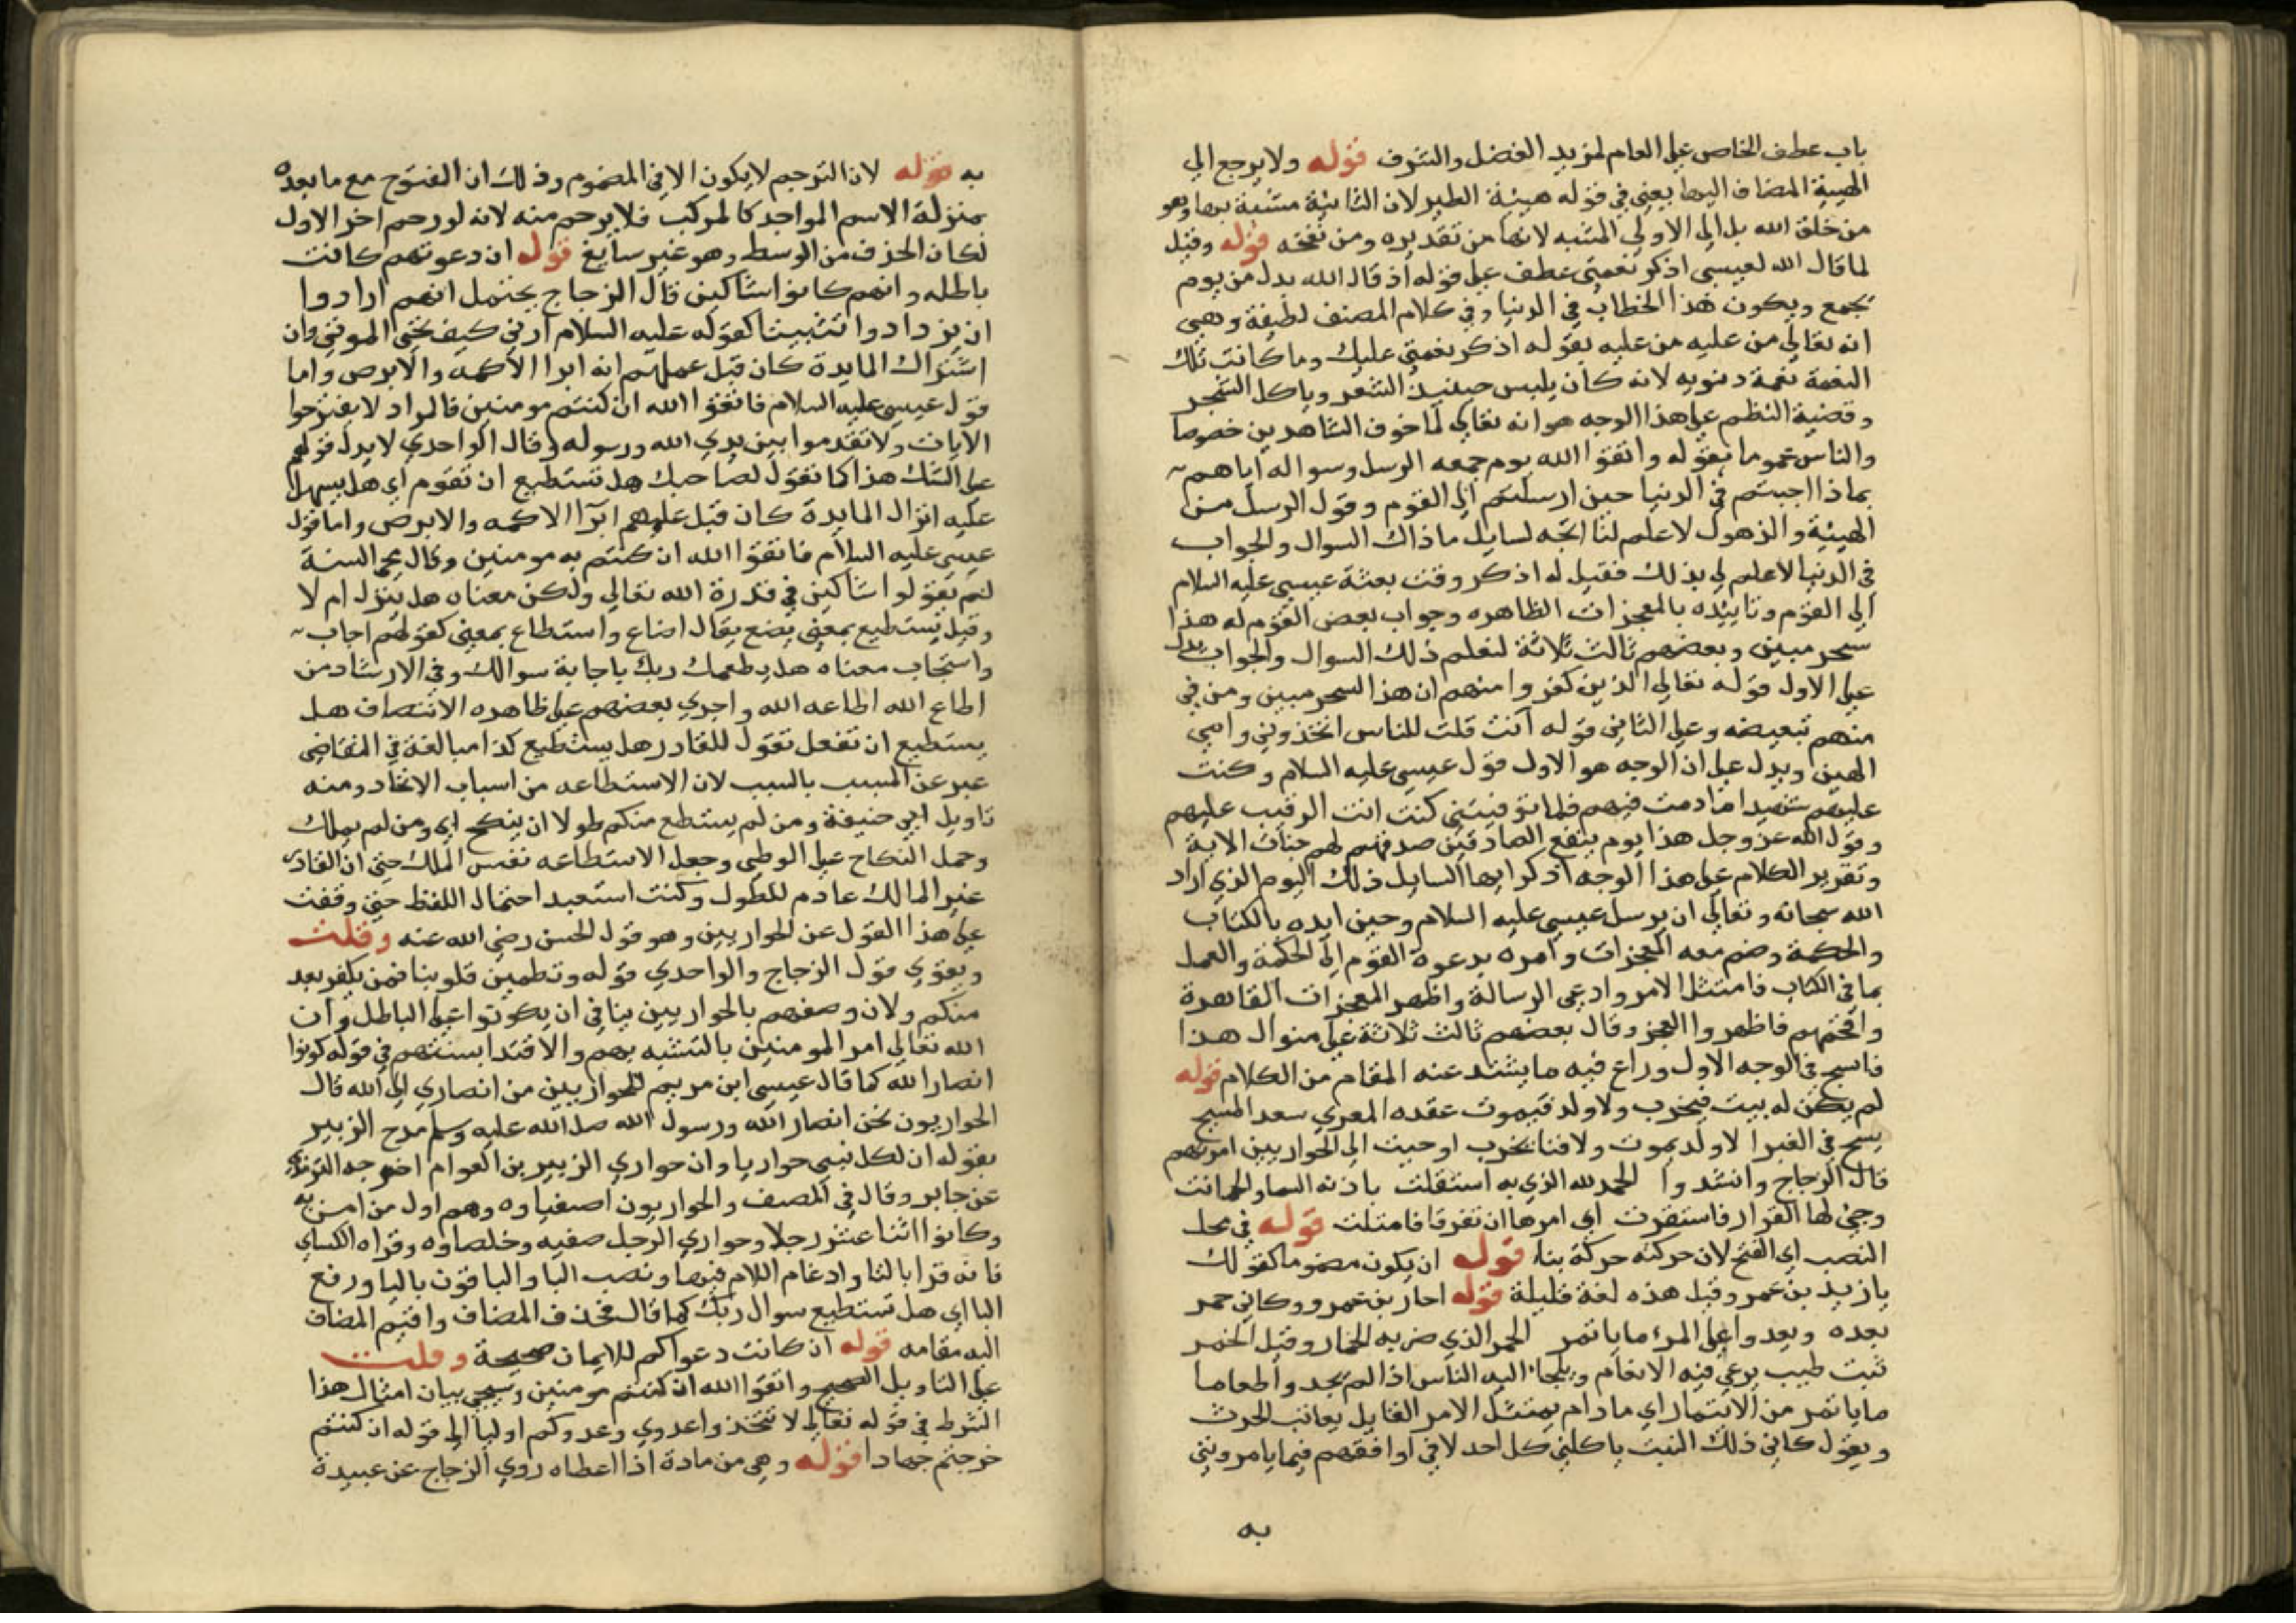 باب عطف الخاص علي العام لمزيد الفضل والشرف قوله ولا يرجع الي
الهيئة المضاف اليها يعني في قوله هيئة الطير لان الثانية مشبة بها وهو
من خلق الله بل الي الاولي المشبه لانها من تقديره ومن نفخه قوله وقيل
لما قال الله لعيسي اذكر نعمتي عطف علي قوله اذ قال الله بدل من يوم
يجمع ويكون هذا الخطاب في الدنيا وفي كلام المصنف لطيفة وهي
انه تعالي من عليه من عليه بقوله اذكر نعمتي عليك وما كانت تلك
النعمة نعمة دنويه لانه كان يلبس حينيذ الشعر وياكل الشجر
وقضية النظم علي هذا الوجه هو انه تعالي لما خوف الشاهدين خصوصا
والناس عموما بقوله واتقوا الله يوم جمعه الرسل وسواله اياهم
بماذا اجبتم في الدنيا حين ارسلتم الي القوم وقول الرسل من
الهيئة والذهول لا علم لنا اتجه لسايل ما ذاك السوال والجواب
في الدنيا لا علم لي بذلك فقيل له اذكر وقت بعثة عيسي عليه السلام
الي القوم وتاييده بالمعجزات الظاهره وجواب بعض القوم له هذا
سحر مبين وبعضهم ثالث ثلاثة لتعلم ذلك السوال والجواب يدل
علي الاول قوله تعالي الذين كفروا منهم ان هذا السحر مبين ومن في
منهم تبعيضه وعلي الثاني قوله آنت قلت للناس اتخذوني وامي
الهين ويدل علي ان الوجه هو الاول قول عيسي عليه السلام وكنت
عليهم شهيدا ما دمت فيهم فلما توفيتني كنت انت الرقيب عليهم
وقول الله عز وجل هذا يوم ينفع الصادقين صدقهم لهم جنات الاية
وتقرير الكلام علي هذا الوجه اذكر ايها السايل ذلك اليوم الذي اراد
الله سبحانه وتعالي ان يرسل عيسي عليه السلام وحين ايده بالكتاب
والحكمة وضم معه المعجزات وامره بدعوة القوم الي الحكمة والعمل
بما في الكتاب فامتثل الامر وادعي الرسالة واظهر المعجزات القاهرة
وافحمهم فاظهروا العجز وقال بعضهم ثالث ثلاثة علي منوال هذا
فانسج في الوجه الاول وراع فيه ما يشتد عنه المقام من الكلام قوله
لم يكن له بيت فيخرب ولا ولد فيموت عقده المعري سعد المسيح
يسيح في الغبرا لا ولد يموت ولا فنا يخرب اوحيت الي الحواريين امرتهم
قال الزجاج وانشدوا الحمد لله الذي به استقلت باذنه السما واطمانت
وحي لها القرار فاستقرت اي امرها ان تقر قافا متلت قوله في محل
النصب اي الفتح لان حركته حركة بنا قوله ان يكون مضموما كقولك
يا زيد بن عمر وقيل هذه لغة قليلة قوله احار بن عمرو وكاني خمر
بعده ويعدوا علي المرء ما ياتمر الخمر الذي ضربه الخمار وقيل الخمر
نبت طيب يرعي فيه الانعام ويلجاء اليه الناس اذا لم يجدوا طعاما
ما ياتمر من الايتمار اي ما دام يمتثل الامر القايل يعاتب الحرث
ويقول كاني ذلك النبت ياكلني كل احد لاني اوافقهم فيما يامرونني
به
به قوله لان الترخيم لا يكون الا في المضموم وذلك ان الفتوح مع ما بعده
بمنزلة الاسم الواحد كالمركب فلا يرخم منه لانه لو رخم اخر الاول
لكان الحذف من الوسط وهو غير سايغ قوله ان دعوتهم كانت
باطله وانهم كانوا شاكين قال الزجاج يحتمل انهم ارادوا
ان يزدادوا تثبيتا كقوله عليه السلام ارني كيف تحيي الموتي وان
اشتراك المايدة كان قبل عملهم انه ابرا الاكمه والابرص واما
قول عيسي عليه السلام فاتقوا الله ان كنتم مومنين فالمراد لا يقترحوا
الايات ولا تقدموا بين يدي الله ورسوله وقال الواحدي لا يدل قولهم
علي الشك هذا كما تقول لصاحبك هل تستطيع ان تقوم اي هل يسهل
عليه انزال المايدة كان قبل علمهم ابرا الاكمه والابرص واما قول
عيسي عليه السلام فاتقوا الله ان كنتم به مومنين وقال محي السنة
لم يقولوا شاكين في قدرة الله تعالي ولكن معناه هل ينزل ام لا
وقيل يستطيع بمعني يضع يقال اضاع واستطاع بمعني كقولهم اجاب
واستجاب معناه هل يطعمك ربك باجابة سوالك وفي الارشاد من
اطاع الله اطاعه الله واجري بعضهم علي ظاهره الانتصاف هل
يستطيع ان تفعل تقول للقادر هل يستطيع كذا مبالغة في التقاضي
عبر عن المسبب بالسبب لان الاستطاعه من اسباب الايجاد ومنه
تاويل ابي حنيفة ومن لم يستطع منكم طولا ان ينكح اي ومن لم يملك
وحمل النكاح علي الوطي وجعل الاستطاعه نفس الملك حتي ان القادر
غير المالك عادم للطول وكنت استبعد احتمال اللفظ حتي وقفت
علي هذا القول عن الحواريين وهو قول الحسن رضي الله عنه وقلت
ويقوي قول الزجاج والواحدي قوله وتطمين قلوبنا فمن يكفر بعد
منكم ولان وصفهم بالحواريين ينافي ان يكونوا علي الباطل وان
الله تعالي امر المومنين بالتشبه بهم والاقتدا بسنتهم في قوله كونوا
انصار الله كما قال عيسي ابن مريم للحواريين من انصاري الي الله قال
الحواريون نحن انصار الله ورسول الله صل الله عليه وسلم مدح الزبير
بقوله ان لكل نبي حواريا وان حواري الزبير بن العوام اخرجه الترمذي
عن جابر وقال في المصنف والحواريون اصفياوه وهم اول من امن به
وكانوا اثنا عشر رجلا وحواري الرجل صفيه وخلصاوه وقراه الكساي
فانه قرا بالتا وادغام اللام فيها ونصب البا والباقون باليا ورفع
البا اي هل تستطيع سوال ربك كما قال فحذف المضاف واقيم المضاف
اليه مقامه قوله ان كانت دعواكم للايمان صحيحة وقلت
علي التاويل الصحيح واتقوا الله ان كنتم مومنين وسيجي بيان امثال هذا
الشرط في قوله تعالي لا تتخذوا عدوي وعدوكم اوليا الي قوله ان كنتم
خرجتم جهادا قوله وهي من مادة اذا اعطاه روي الزجاج عن عبيدة